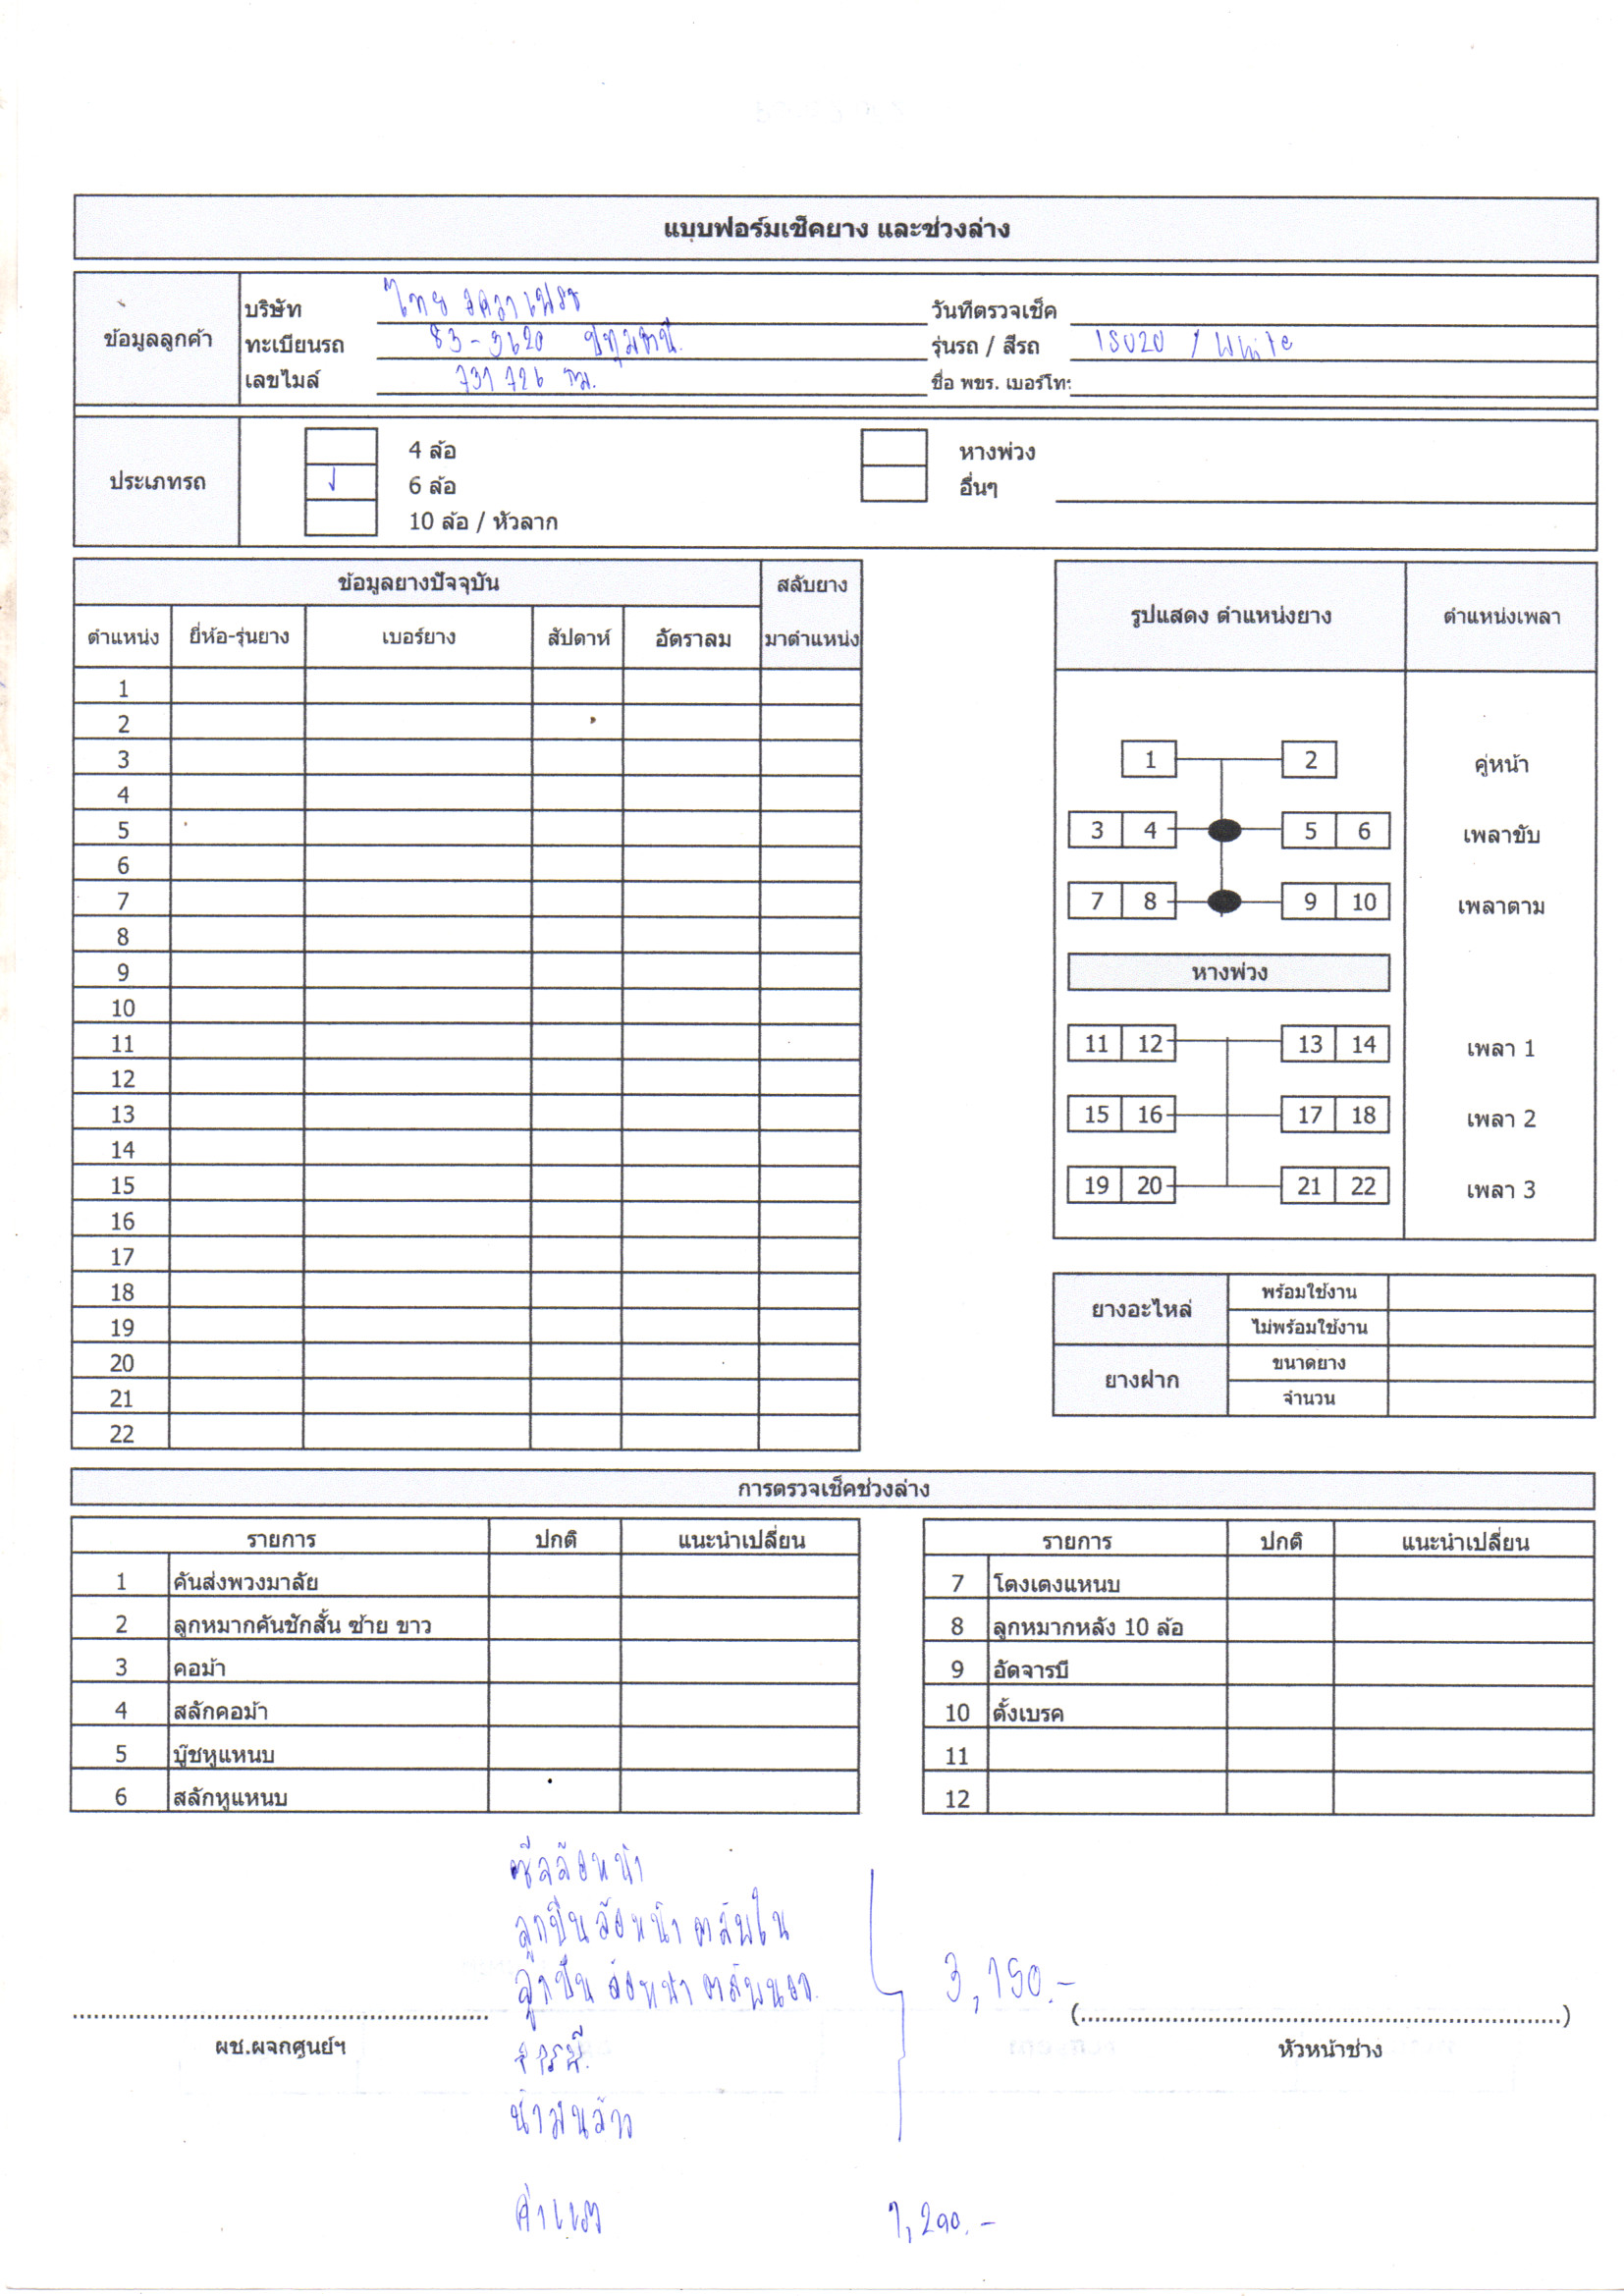 แบบฟอร์มเช็คยาง และช่วงล่าง
ข้อมูลลูกค้า
บริษัท ไทย
วันที่ตรวจเช็ค
ทะเบียนรถ 83-3620 ปทุมธานี.
รุ่นรถ / สีรถ ISUZU / White
เลขไมล์ 731 726 กม.
ชื่อ พขร. เบอร์โท:
ประเภทรถ
4 ล้อ
6 ล้อ
10 ล้อ / หัวลาก
หางพ่วง
อื่นๆ
ข้อมูลยางปัจจุบัน สลับยาง
ตำแหน่ง ยี่ห้อ-รุ่นยาง เบอร์ยาง สัปดาห์ อัตราลม มาตำแหน่ง
1
2
3
4
5
6
7
8
9
10
11
12
13
14
15
16
17
18
19
20
21
22
รูปแสดง ตำแหน่งยาง ตำแหน่งเพลา
1 2 คู่หน้า
3 4 5 6 เพลาขับ
7 8 9 10 เพลาตาม
หางพ่วง
11 12 13 14 เพลา 1
15 16 17 18 เพลา 2
19 20 21 22 เพลา 3
ยางอะไหล่ พร้อมใช้งาน
ไม่พร้อมใช้งาน
ยางฝาก ขนาดยาง
จำนวน
การตรวจเช็คช่วงล่าง
รายการ ปกติ แนะนำเปลี่ยน
1 คันส่งพวงมาลัย
2 ลูกหมากคันชักสั้น ซ้าย ขาว
3 คอม้า
4 สลักคอม้า
5 บู๊ชหูแหนบ
6 สลักหูแหนบ
รายการ ปกติ แนะนำเปลี่ยน
7 โตงเตงแหนบ
8 ลูกหมากหลัง 10 ล้อ
9 อัดจารบี
10 ตั้งเบรค
11
12
ซีลล้อหน้า
ลูกปืนล้อหน้า ตลับใน
ลูกปืน ล้อหน้า ตลับนอก
3,150.-
จารบี
น้ำมันล้าง
ผช.ผจกศูนย์ฯ
(........................) 
หัวหน้าช่าง
ค่าแรง 1,200.-